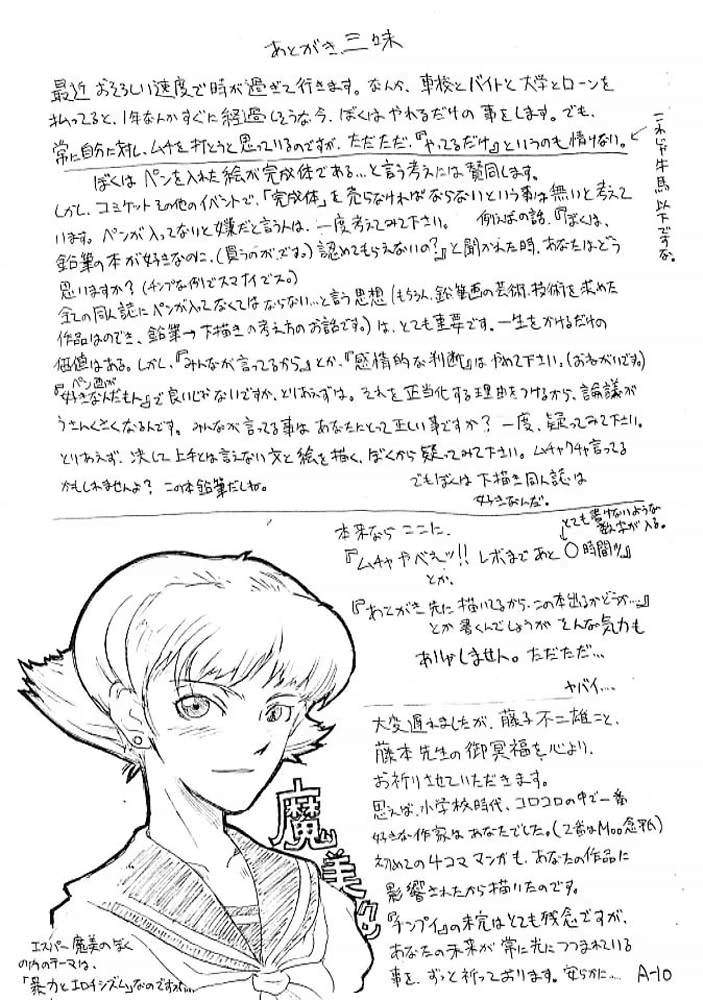 あとがき三昧
最近おそろしい速度で時が過ぎて行きます。なんか、車校とバイトと大学とローンを
払ってると、1年なんかすぐに経過しそうな今、ぼくはやれるだけの事をします。でも、
常に自分に対し、ムチを打とうと思っているのですが、ただただ、『やってるだけ』というのも情けない。
これじゃ牛馬以下ですな。
ぼくはペンを入れた絵が完成体である…と言う考えには賛同します。
しかし、コミケットその他のイベントで、「完成体」を売らなければならないという事は無いと考えて
います。ペンが入ってないと嫌だと言う人は、一度考えてみて下さい。 例えばの話、『ぼくは、
鉛筆の本が好きなのに、(買うのが、です。) 認めてもらえないの?』と聞かれた時、あなたはどう
思いますか? (チンプな例でスマナイでス。)
全ての同人誌にペンが入ってなくてはならない…と言う思想 (もちろん、鉛筆画の芸術、技術を求めた
作品はのぞき、鉛筆→下描きの考え方のお話です。) は、とても重要です。一生をかけるだけの
価値はある。しかし、『みんなが言ってるから』とか、『感情的な判断』はやめて下さい。(おねがいです。)
『ペン画が好きなんだもん』で良いじゃないですか、とりあえずは。それを正当化する理由をつけるから、論議が
うさんくさくなるんです。みんなが言ってる事はあなたにとって正しい事ですか? 一度、疑ってみて下さい。
とりあえず、決して上手とは言えない文と絵を描く、ぼくから疑ってみて下さい。ムチャクチャ言ってる
かもしれませんよ? この本鉛筆だしね。 でもぼくは下描き同人誌は
好きなんだ。
本来ならここに、
とても書けないような
数字が入る。
『ムチャやべえッ!! レボまであと〇時間%』
とか、
『あとがき先に描いてるから、この本出るかどうか…。』
とか書くんでしょうがそんな気力も
ありゃしません。ただただ…
ヤバイ….
大変遅れましたが、藤子不二雄こと、
藤本先生の御冥福を心より、
お祈りさせていただきます。
思えば、小学校時代、コロコロの中で一番
好きな作家はあなたでした。(2番はMoo念平)
初めての4コママンガも、あなたの作品に
影響されたから描いたのです。
『チンプイ』の未完はとても残念ですが、
あなたの未来が常に光につつまれている
事を、ずっと祈っております。安らかに…
A-10
魔美クン
エスパー魔美のぼく
の内のテーマは、
「暴力とエロイシズム」なのですが…